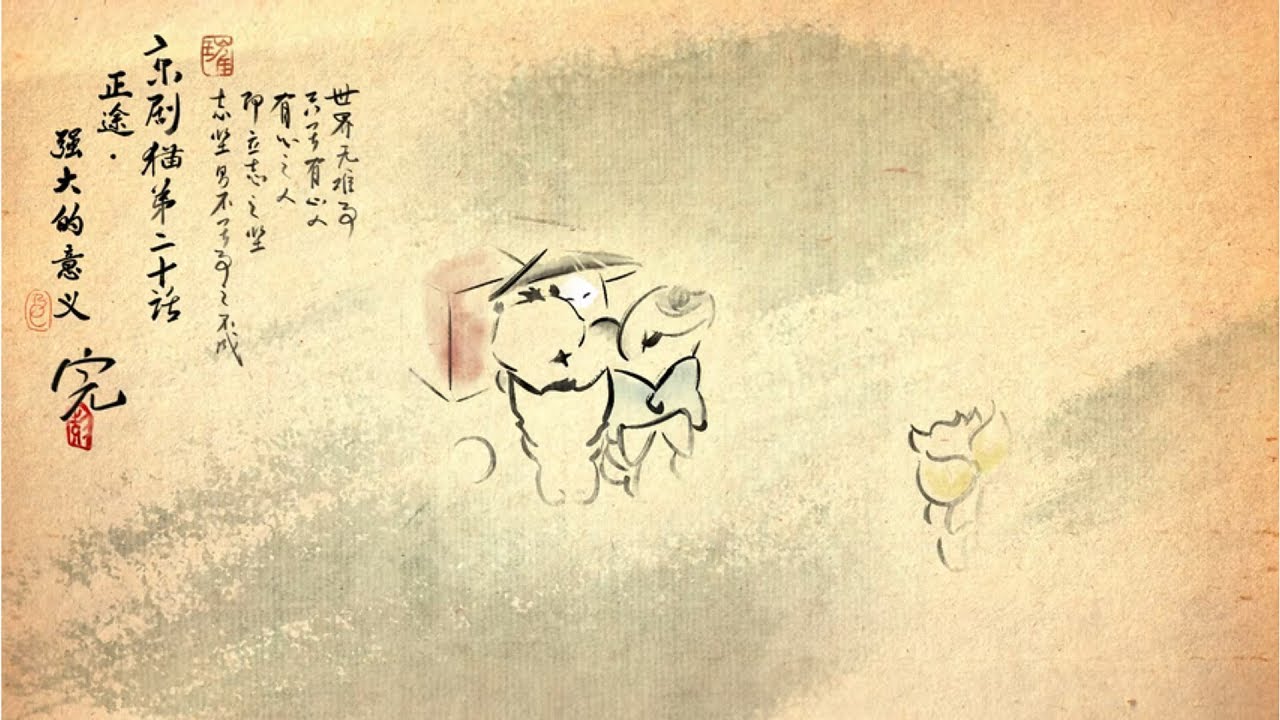 世界无难事
只畏有心人
有心之人
即立志之坚
志坚则不畏事之不成
京剧猫第二十话
正途·
强大的意义
完